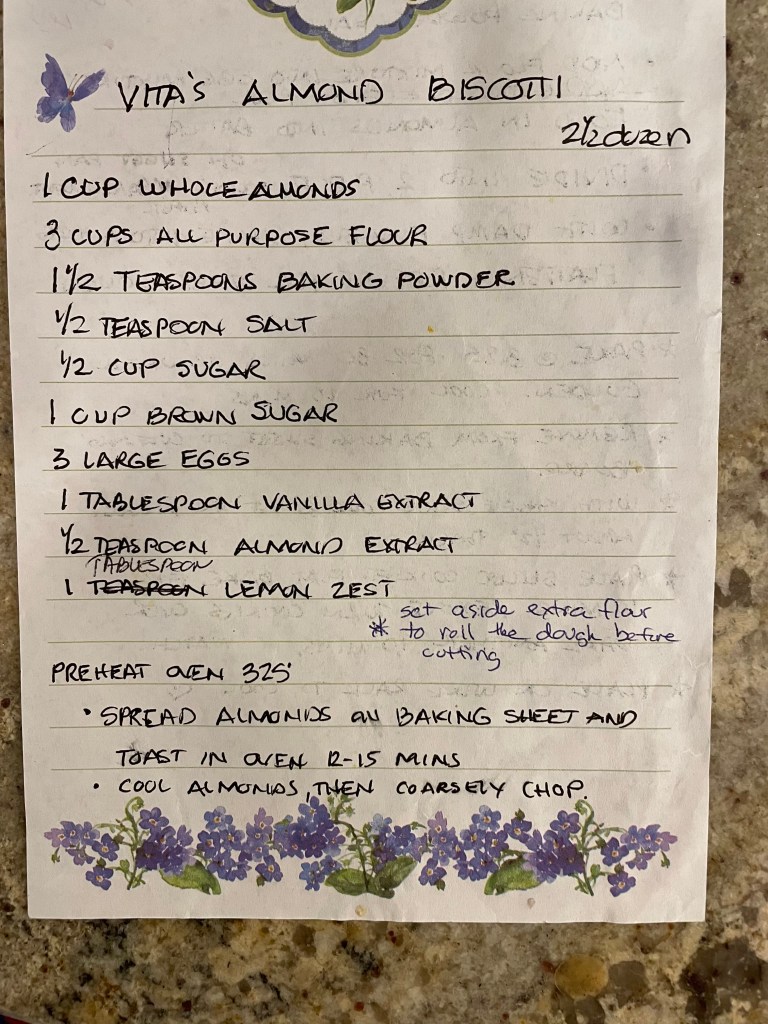 VITA'S ALMOND BISCOTTI
2 1/2 dozen
1 CUP WHOLE ALMONDS
3 CUPS ALL PURPOSE FLOUR
1 1/2 TEASPOONS BAKING POWDER
1/2 TEASPOON SALT
1/2 CUP SUGAR
1 CUP BROWN SUGAR
3 LARGE EGGS
1 TABLESPOON VANILLA EXTRACT
1/2 TEASPOON ALMOND EXTRACT
TABLESPOON
1 TEASPOON LEMON ZEST
set aside extra flour
* to roll the dough before
cutting
PREHEAT OVEN 325°
• SPREAD ALMONDS ON BAKING SHEET AND
TOAST IN OVEN 12-15 MINS
• COOL ALMONDS, THEN COARSELY CHOP.